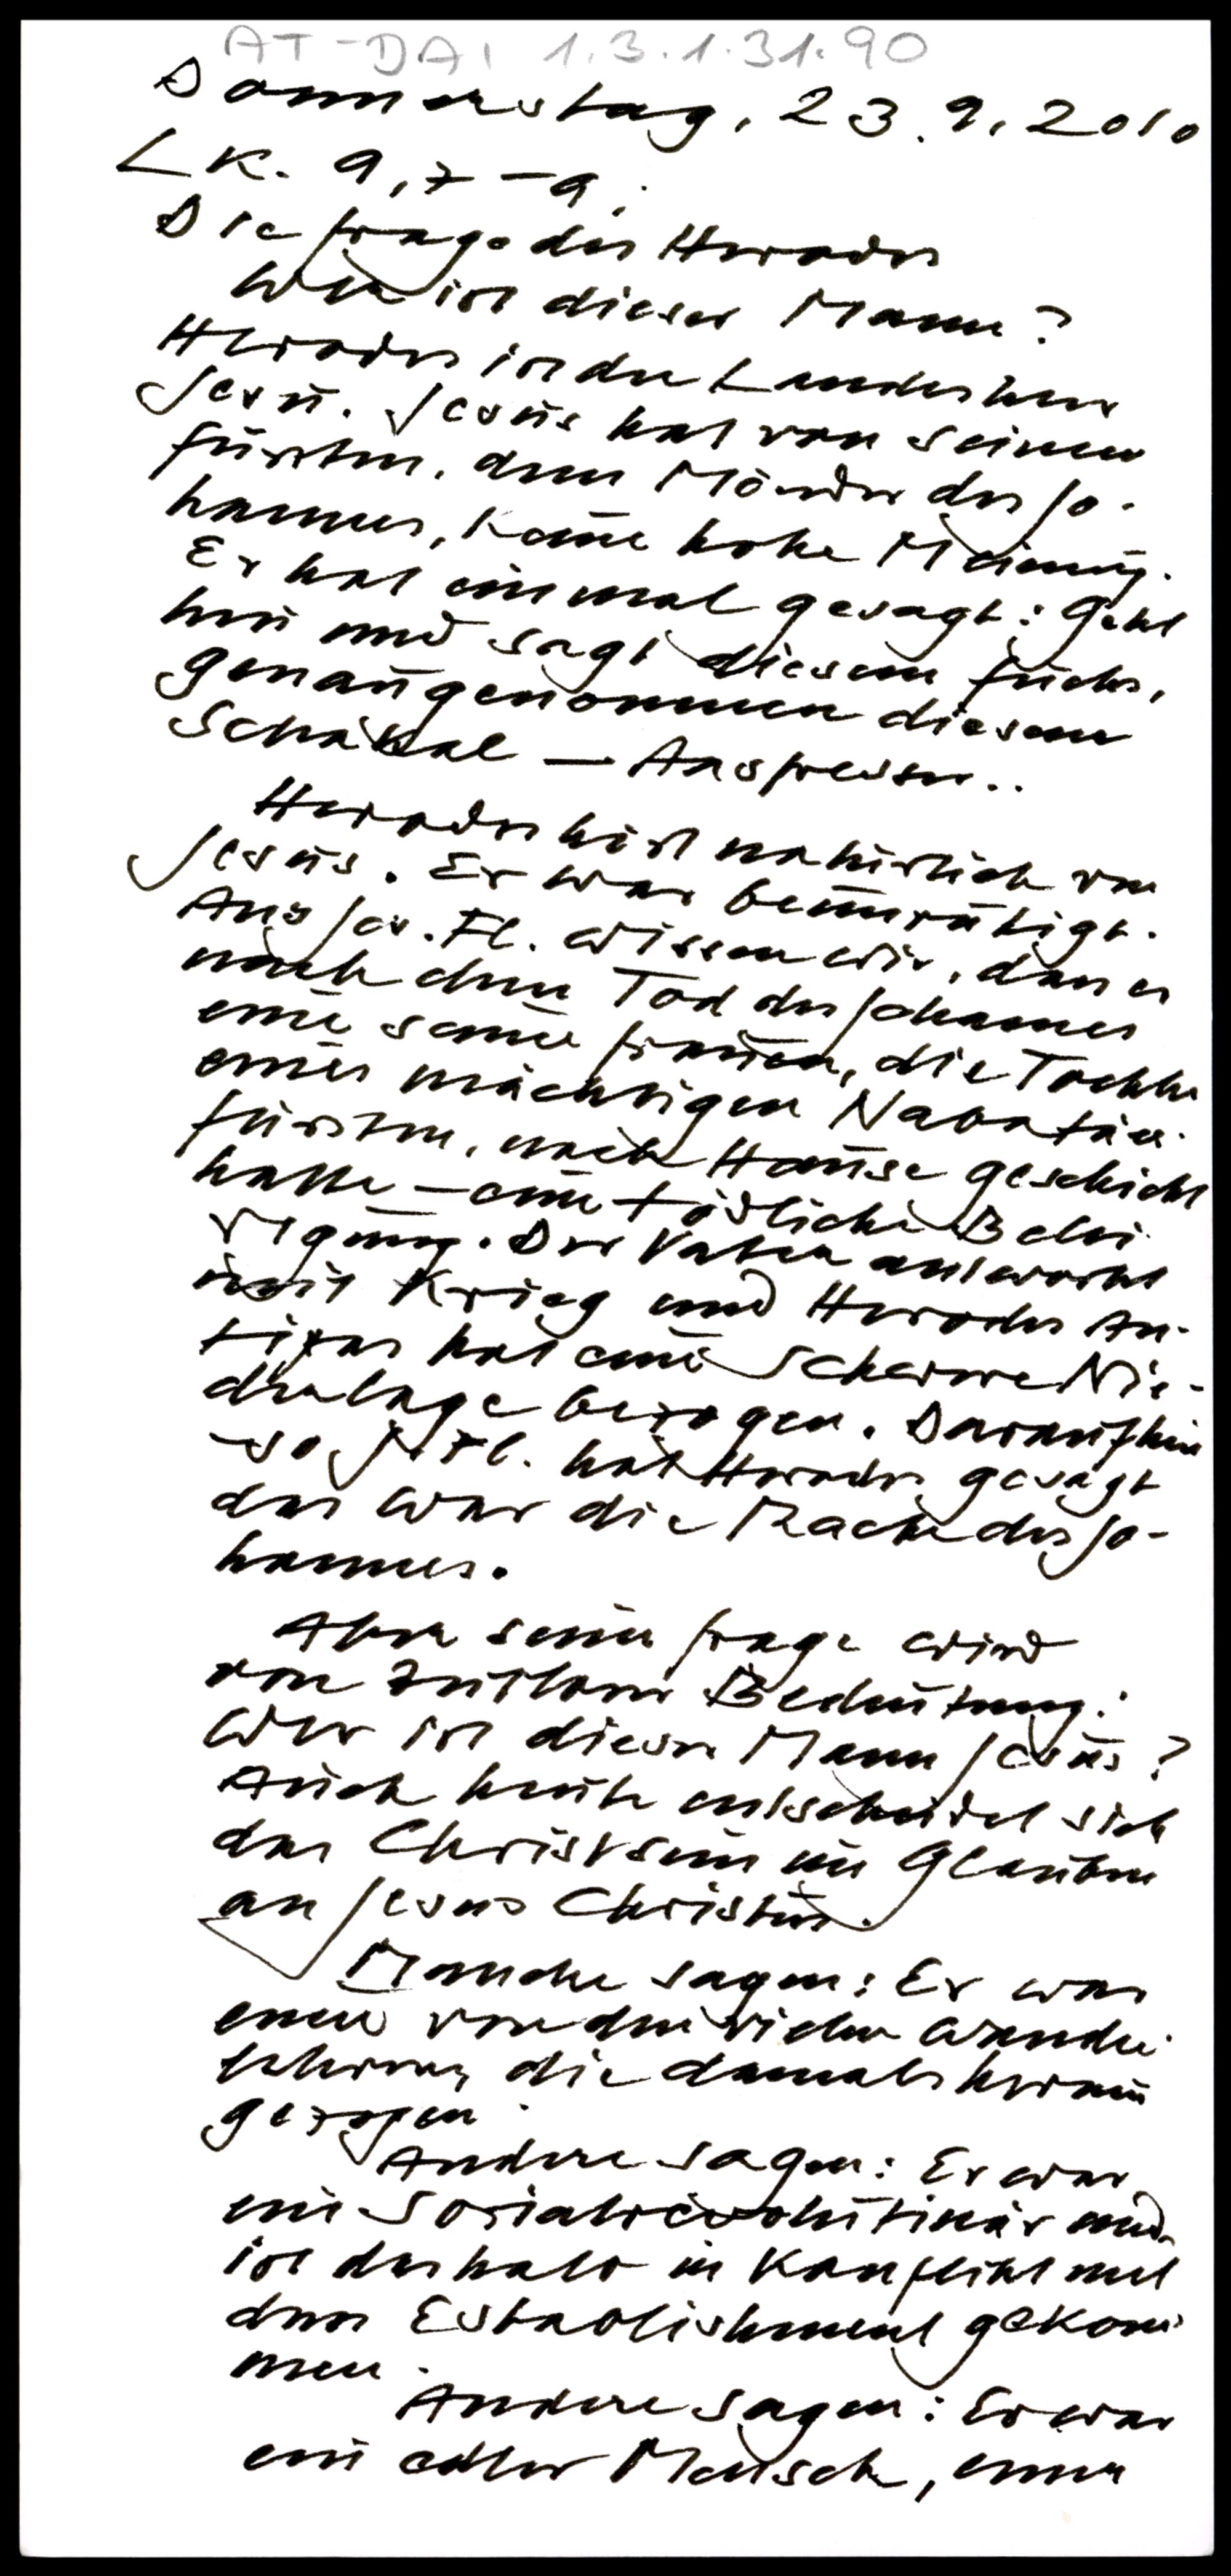 AT-DAI 1.3.1.31.90
Donnerstag, 23.9.2010
Lk. 9,7-9:
Die Frage des Herodes
Wer ist dieser Mann?
Herodes ist der Landesherr
Jesu. Jesus hat von seinem
Fürsten, dem Mörder des Jo-
hannes, keine hohe Meinung.
Er hat einmal gesagt: Geht
hin und sagt diesem Fuchs,
genaugenommen diesem
Schakal —
Herodes hört natürlich von
Jesus. Er war beunruhigt.
Aus Jos. Fl. wissen wir, dass er
nach dem Tod des Johannes
eine seiner Frauen, die Tochter
eines mächtigen Nabatäer-
fürsten, nach Hause geschickt
hatte - eine tödliche Belei-
digung. Der Vater antwortet
mit Krieg und Herodes An-
tipas hat eine schwere Nie-
derlage bezogen. Daraufhin
- so J. Fl. hat Herodes gesagt
das war die Rache des Jo-
hannes.
Aber seine Frage wird
von zeitloser Bedeutung:
Wer ist dieser Mann Jesus?
Auch heute entscheidet sich
das Christsein im Glauben
an Jesus Christus.
Manche sagen: Er war
einer von den vielen Wander-
lehrern, die damals herum
gezogen.
Andere sagen: Er war
ein Sozialrevolutionär und
ist deshalb in Konflikt mit
dem Establishment gekom-
men.
Andere sagen: Er war
ein edler Mensch, einer